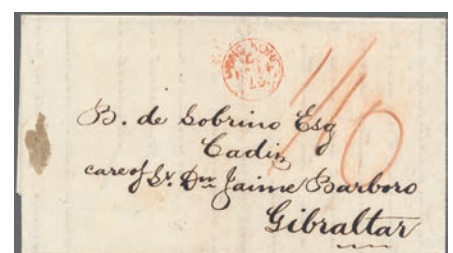 B. de Sobrino Esq
Cadiz
care of Sr. Dn Jaime Barboro
Gibraltar
1/10